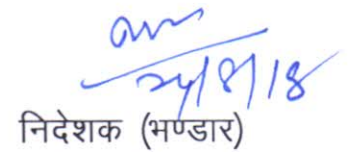 24/8/18
निदेशक (भण्डार)